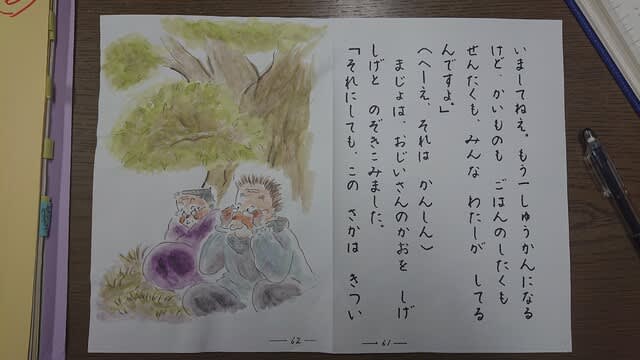 いましてねえ。もう一しゅうかんになる
けど、かいものも ごはんのしたくも
せんたくも、みんな わたしが してる
んですよ。」
（へーえ、それは かんしん）
まじょは、おじいさんのかおを しげ
しげと のぞきこみました。
「それにしても、この さかは きつい
61
62